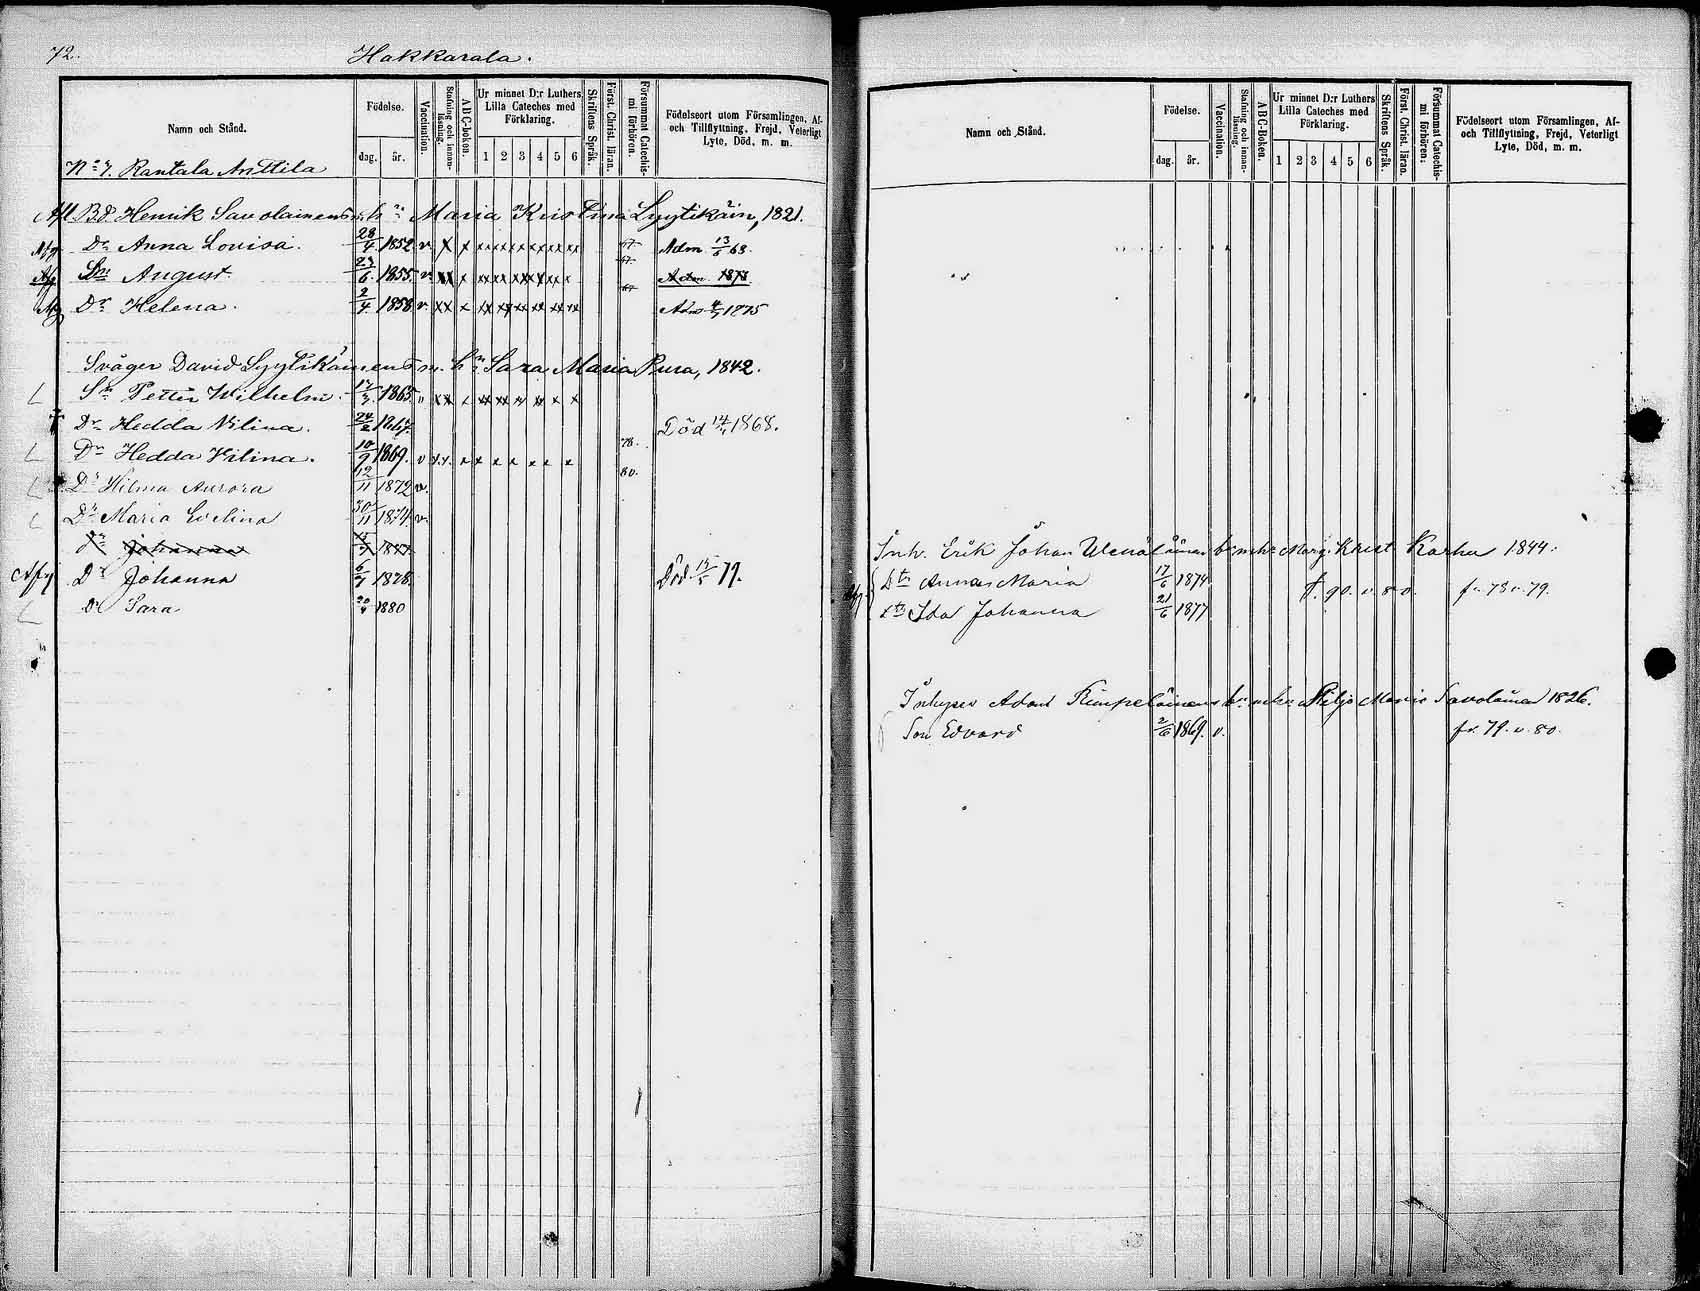 72.
Hakkarala.
Namn och Stånd.
Födelse.
dag.
år.
Vaccination.
Stafning och innan-läsning.
ABC-boken.
Ur minnet D:r Luthers
Lilla Cateches med
Förklaring.
1 2 3 4 5 6
Skriftens Språk.
Först. Christ. läran.
Försummat Catechis-
mi förhören.
Födelseort utom Församlingen, Af-
och Tillflyttning, Frejd, Veterligt
Lyte, Död, m. m.
N:o 7. Rantala Anttila
Afl Bd. Henrik Savolainens m. hu Maria Kristina Lyytikäin, 1821.
Dr Anna Lovisa. 28/4 1852 v. x x x x x x x x x x x x x 67. Adm 13/6 68.
Afg Son August. 23/6 1855. v. xx x xx xx xx xx x x 67. Adm 1873
Dr Helena. 2/4 1858 v. xx x xx xx xx xx xx xx 67 Adm 4/7 1875
Svåger David Lyytikäinens m. hu Sara Maria Pura, 1842.
L Sn Petter Wilhelm. 17/7 1865. v xx x xx xx x x x x
Dr Hedda Vilina. 24/2 1867. Död 14/4 1868.
L Dr Hedda Vilina. 10/9 1869. v x.x. x x x x x x x 78.
L Dr Hilma Aurora 12/11 1872 v. 80.
L Dr Maria Evelina 30/11 1874. v.
Dr Johanna
Afg Dr Johanna 6/7 1878. Död 15/5 79.
L Dr Sara 1880
Namn och Stånd.
Födelse.
dag.
år.
Vaccination.
Stafning och innan-läsning.
ABC-Boken.
Ur minnet D:r Luthers
Lilla Cateches med
Förklaring.
1 2 3 4 5 6
Skriftens Språk.
Först. Christ. läran.
Försummat Catechis-
mi förhören:
Födelseort utom Församlingen, Af-
och Tillflyttning, Frejd, Veterligt
Lyte, Död, m. m.
Inh. Erik Johan Wenäläinens br m hu Marg. Krist Karhu 1844.
Dtr Anna Maria 17/6 1874 fr. 78 v. 79.
Dtr Ida Johanna 21/6 1877
Inhyses Adam Kimpeläinens br m hu Maria Savolainen 1826.
Son Edvard 2/6 1869. v. fr. 79. v. 80.